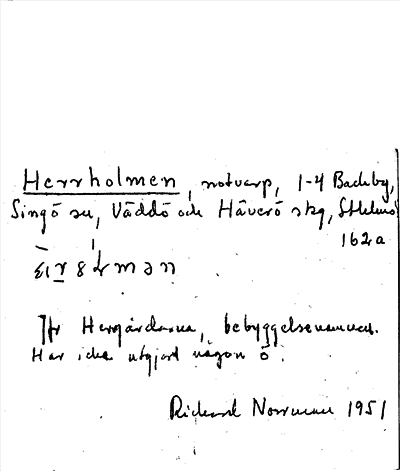 Herrholmen, notvarp, 1-4 Backby,
Singö sn, Väddö och Häverö skg, Sthlms
162a
Jfr Hergårdarna, bebyggelsenamnen.
Har icke utgjort någon ö.
Rickard Norrman 1951